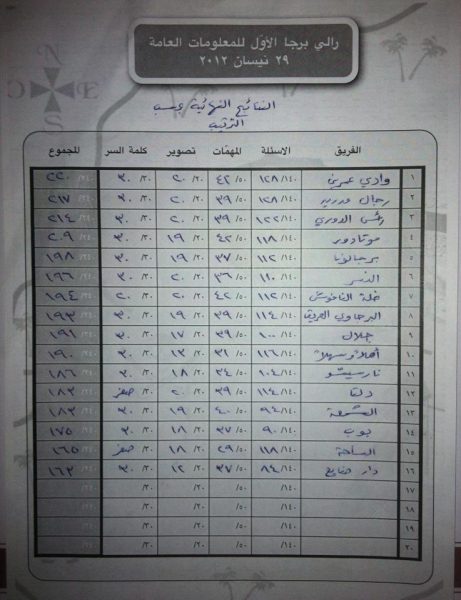 رالي برجا الأوّل للمعلومات العامة
٢٩ نيسان ٢٠١٢
N
E
S
النتائج النهائية حسب
الترتيب
الفريق الاسئلة المهمّات تصوير كلمة السر المجموع
١ وادي ١٢٨/١٤٠ ٤٢/٥٠ ٢٠/٢٠ ٣٠/٣٠ ٢٢٠/٢٤٠
٢ رجال ١٢٨/١٤٠ ٣٩/٥٠ ٢٠/٢٠ ٣٠/٣٠ ٢١٧/٢٤٠
٣ الدوري ١٢٢/١٤٠ ٣٩/٥٠ ٢٠/٢٠ ٣٠/٣٠ ٢١٤/٢٤٠
٤ موتادور ١١٨/١٤٠ ٤٢/٥٠ ١٩/٢٠ ٣٠/٣٠ ٢٠٩/٢٤٠
٥ برجالونا ١١٢/١٤٠ ٣٧/٥٠ ١٩/٢٠ ٣٠/٣٠ ١٩٨/٢٤٠
٦ النسر ١١٠/١٤٠ ٣٦/٥٠ ٢٠/٢٠ ٣٠/٣٠ ١٩٦/٢٤٠
٧ خلة ١١٢/١٤٠ ٤٢/٥٠ ٢٠/٢٠ ٢٠/٣٠ ١٩٤/٢٤٠
٨ البرجاوي العريق ١١٤/١٤٠ ٣٩/٥٠ ١٩/٢٠ ٣٠/٣٠ ١٩٣/٢٤٠
٩ جلال ١٠٠/١٤٠ ٣٩/٥٠ ١٧/٢٠ ٣٠/٣٠ ١٩١/٢٤٠
١٠ أهلا وسهلا ١١٦/١٤٠ ٣١/٥٠ ١٣/٢٠ ٣٠/٣٠ ١٩٠/٢٤٠
١١ نارسيسو ١٠٤/١٤٠ ٣٤/٥٠ ١٨/٢٠ ٣٠/٣٠ ١٨٦/٢٤٠
١٢ دلتا ١١٤/١٤٠ ٣٩/٥٠ ٢٠/٢٠ صفر/٣٠ ١٨٣/٢٤٠
١٣ الشمعة ٩٤/١٤٠ ٤٠/٥٠ ١٩/٢٠ ٣٠/٣٠ ١٨٣/٢٤٠
١٤ بوب ٩٠/١٤٠ ٣٧/٥٠ ١٨/٢٠ ٣٠/٣٠ ١٧٥/٢٤٠
١٥ الساحة ١١٨/١٤٠ ٢٩/٥٠ ١٨/٢٠ صفر/٣٠ ١٦٥/٢٤٠
١٦ دار صنايع ٨٤/١٤٠ ٣٧/٥٠ ١٢/٢٠ ٣٠/٣٠ ١٦٣/٢٤٠
١٧ /١٤٠ /٥٠ /٢٠ /٣٠ /٢٤٠
١٨ /١٤٠ /٥٠ /٢٠ /٣٠ /٢٤٠
١٩ /١٤٠ /٥٠ /٢٠ /٣٠ /٢٤٠
٢٠ /١٤٠ /٥٠ /٢٠ /٣٠ /٢٤٠